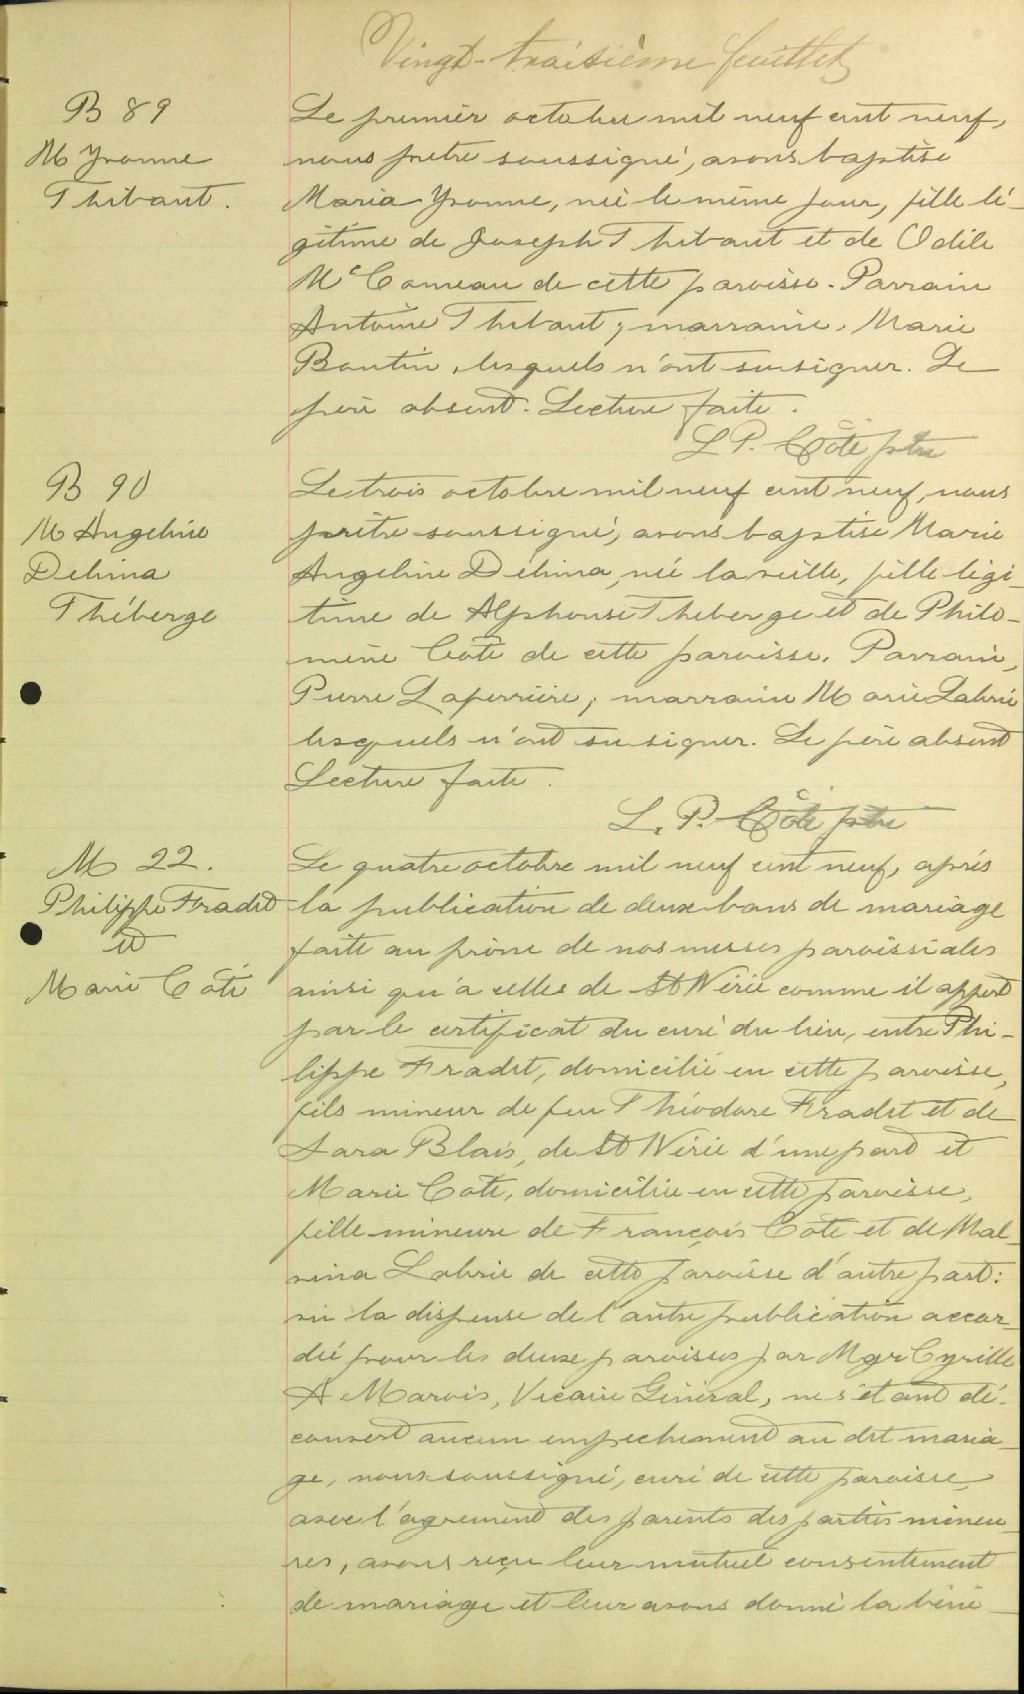 Vingt-troisième feuillet
B 89
M Yvonne
Thibaut.
Le premier octobre mil neuf cent neuf,
nous prêtre soussigné, avons baptisé
Maria Yvonne, née le même jour, fille lé-
gitime de Joseph Thibaut et de Odile
McComeau de cette paroisse. Parrain
Antoine Thibaut; marraine, Marie
Boutin, lesquels n'ont su signer. Le
père absent. Lecture faite.
L P. Côté ptre
B 90
M Angeline
Délima
Théberge
Le trois octobre mil neuf cent neuf, nous
prêtre soussigné, avons baptisé Marie
Angeline Délima, née la veille, fille légi-
time de Alphonse Theberge et de Philo-
mène Coté de cette paroisse. Parrain,
Pierre Laferrière; marraine Marie Labrie
lesquels n'ont su signer. Le père absent
Lecture faite.
L. P. Côté ptre
M 22.
Philippe Fradet
et
Marie Coté
Le quatre octobre mil neuf cent neuf, après
la publication de deux bans de mariage
faite au prône de nos messes paroissiales
ainsi qu'à celles de St Nérée comme il appert
par le certificat du curé du lieu, entre Phi-
lippe Fradet, domicilié en cette paroisse,
fils mineur de feu Théodore Fradet et de
Sara Blais, de St Nérée d'une part et
Marie Coté, domiciliée en cette paroisse,
fille mineure de François Coté et de Mal-
vina Labrie de cette paroisse d'autre part:
vu la dispense de l'autre publication accor-
dée pour les deux paroisses par Mgr Cyrille
A Marois, Vicaire Général, ne s'étant dé-
couvert aucun empechement au dit maria-
ge, nous soussigné, curé de cette paroisse,
avec l'agrement des parents des parties mineu-
res, avons reçu leur mutuel consentement
de mariage et leur avons donné la béné-